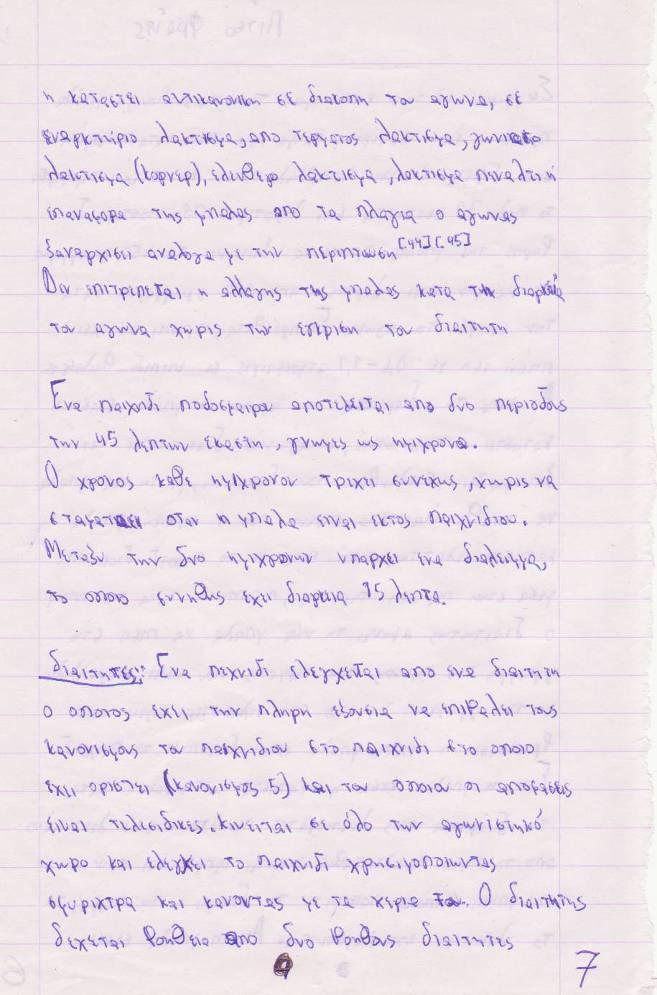 η καταστει αντικανονικη σε διακοπη του αγωνα, σε
εναρκτηριο λακτισμα, απο τερματος λακτισμα, γωνιαιο
λακτισμα (κορνερ), ελευθερο λακτισμα, λακτισμα πεναλτι η
επαναφορα της μπαλας απο τα πλαγια ο αγωνας
ξαναρχισει αναλογα με την περιπτωση [44] [45]
Δεν επιτρεπεται η αλλαγης της μπαλας κατα την διαρκεια
του αγωνα χωρις την εγκριση του διαιτητη
Ενα παιχνιδι ποδοσφαιρου αποτελειται απο δυο περιοδους
την 45 λεπτων εκαστη, γνωμες ως ημιχρονα.
Ο χρονος καθε ημιχρονου τρεχει συνεχως, χωρις να
σταματαει οταν η μπαλα ειναι εκτος παιχνιδιου.
Μεταξυ την δυο ημιχρονων υπαρχει ενα διαλειμμα,
το οποιο συνηθης εχει διαρκεια 15 λεπτα.
διαιτητες: Ενα πεχνιδι ελεγχεται απο ενα διαιτητη
ο οποιος εχει την πληρη εξουσια να επιβαλει τους
κανονισμους του παιχνιδιου στο παιχνιδι στο οποιο
εχει οριστει (κανονισμος 5) και του οποιου οι αποφασεις
ειναι τελεσιδικες. κινειται σε όλο την αγωνιστηκό
χωρο και ελεγχει το παιχνιδι χρησιμοποιωντας
σφυριχτρα και κανοντας με τα χερια του. Ο διαιτητης
δεχεται βοηθεια απο δυο βοηθους διαιτητες
7